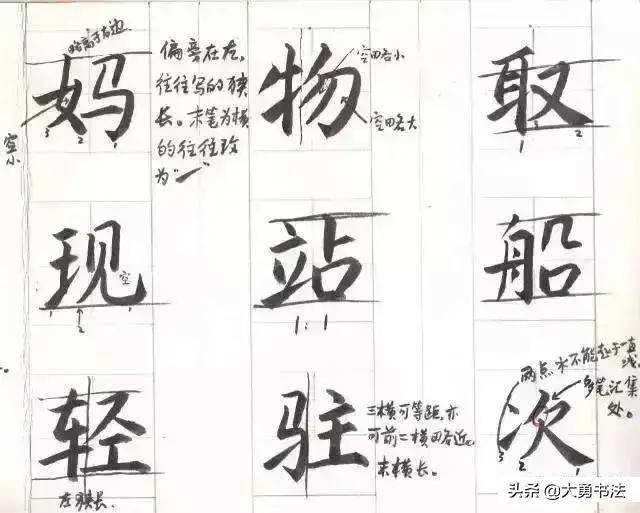 略高于右边
妈
空
小
3 2 1
偏旁在左,
往往写的狭
长。末笔为横
的往往改
为"㇀"
物
空略小
空略大
取
1 3 2
现
空
1 2 1
站
1:1
船
轻
左狭长.
驻
三横可等距,亦
可前二横略近,
末横长。
次
两点水不能起于一直
线,
多笔汇集
处。
3 2 1
头条 @大勇书法